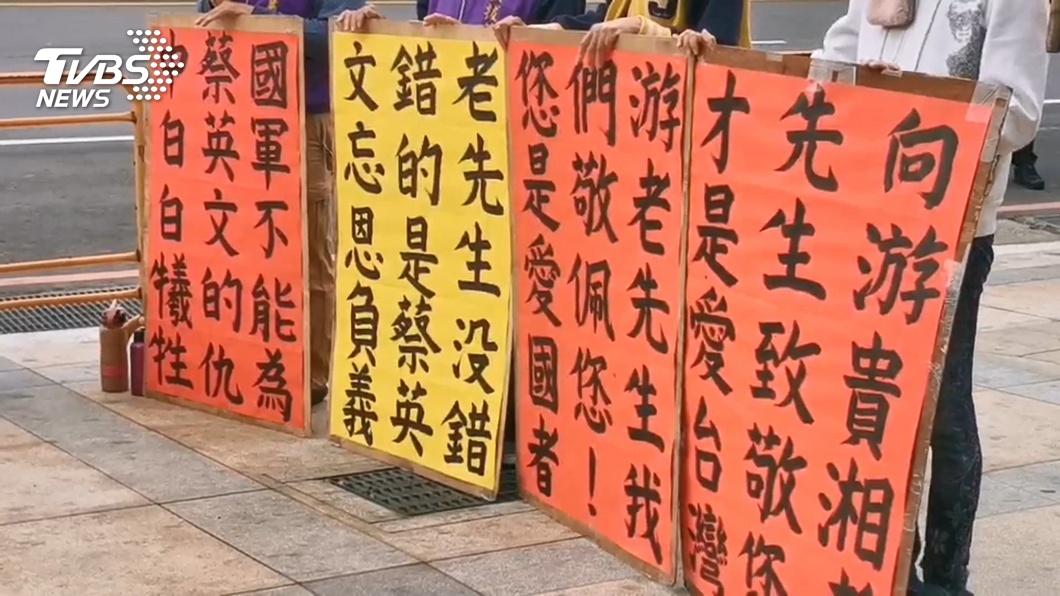 TVBS
NEWS
向游貴湘
先生致敬您
才是愛台灣
游老先生我
們敬佩您！
您是愛國者
老先生没錯
錯的是蔡英
文忘恩負義
國軍不能為
蔡英文的仇
中白白犧牲